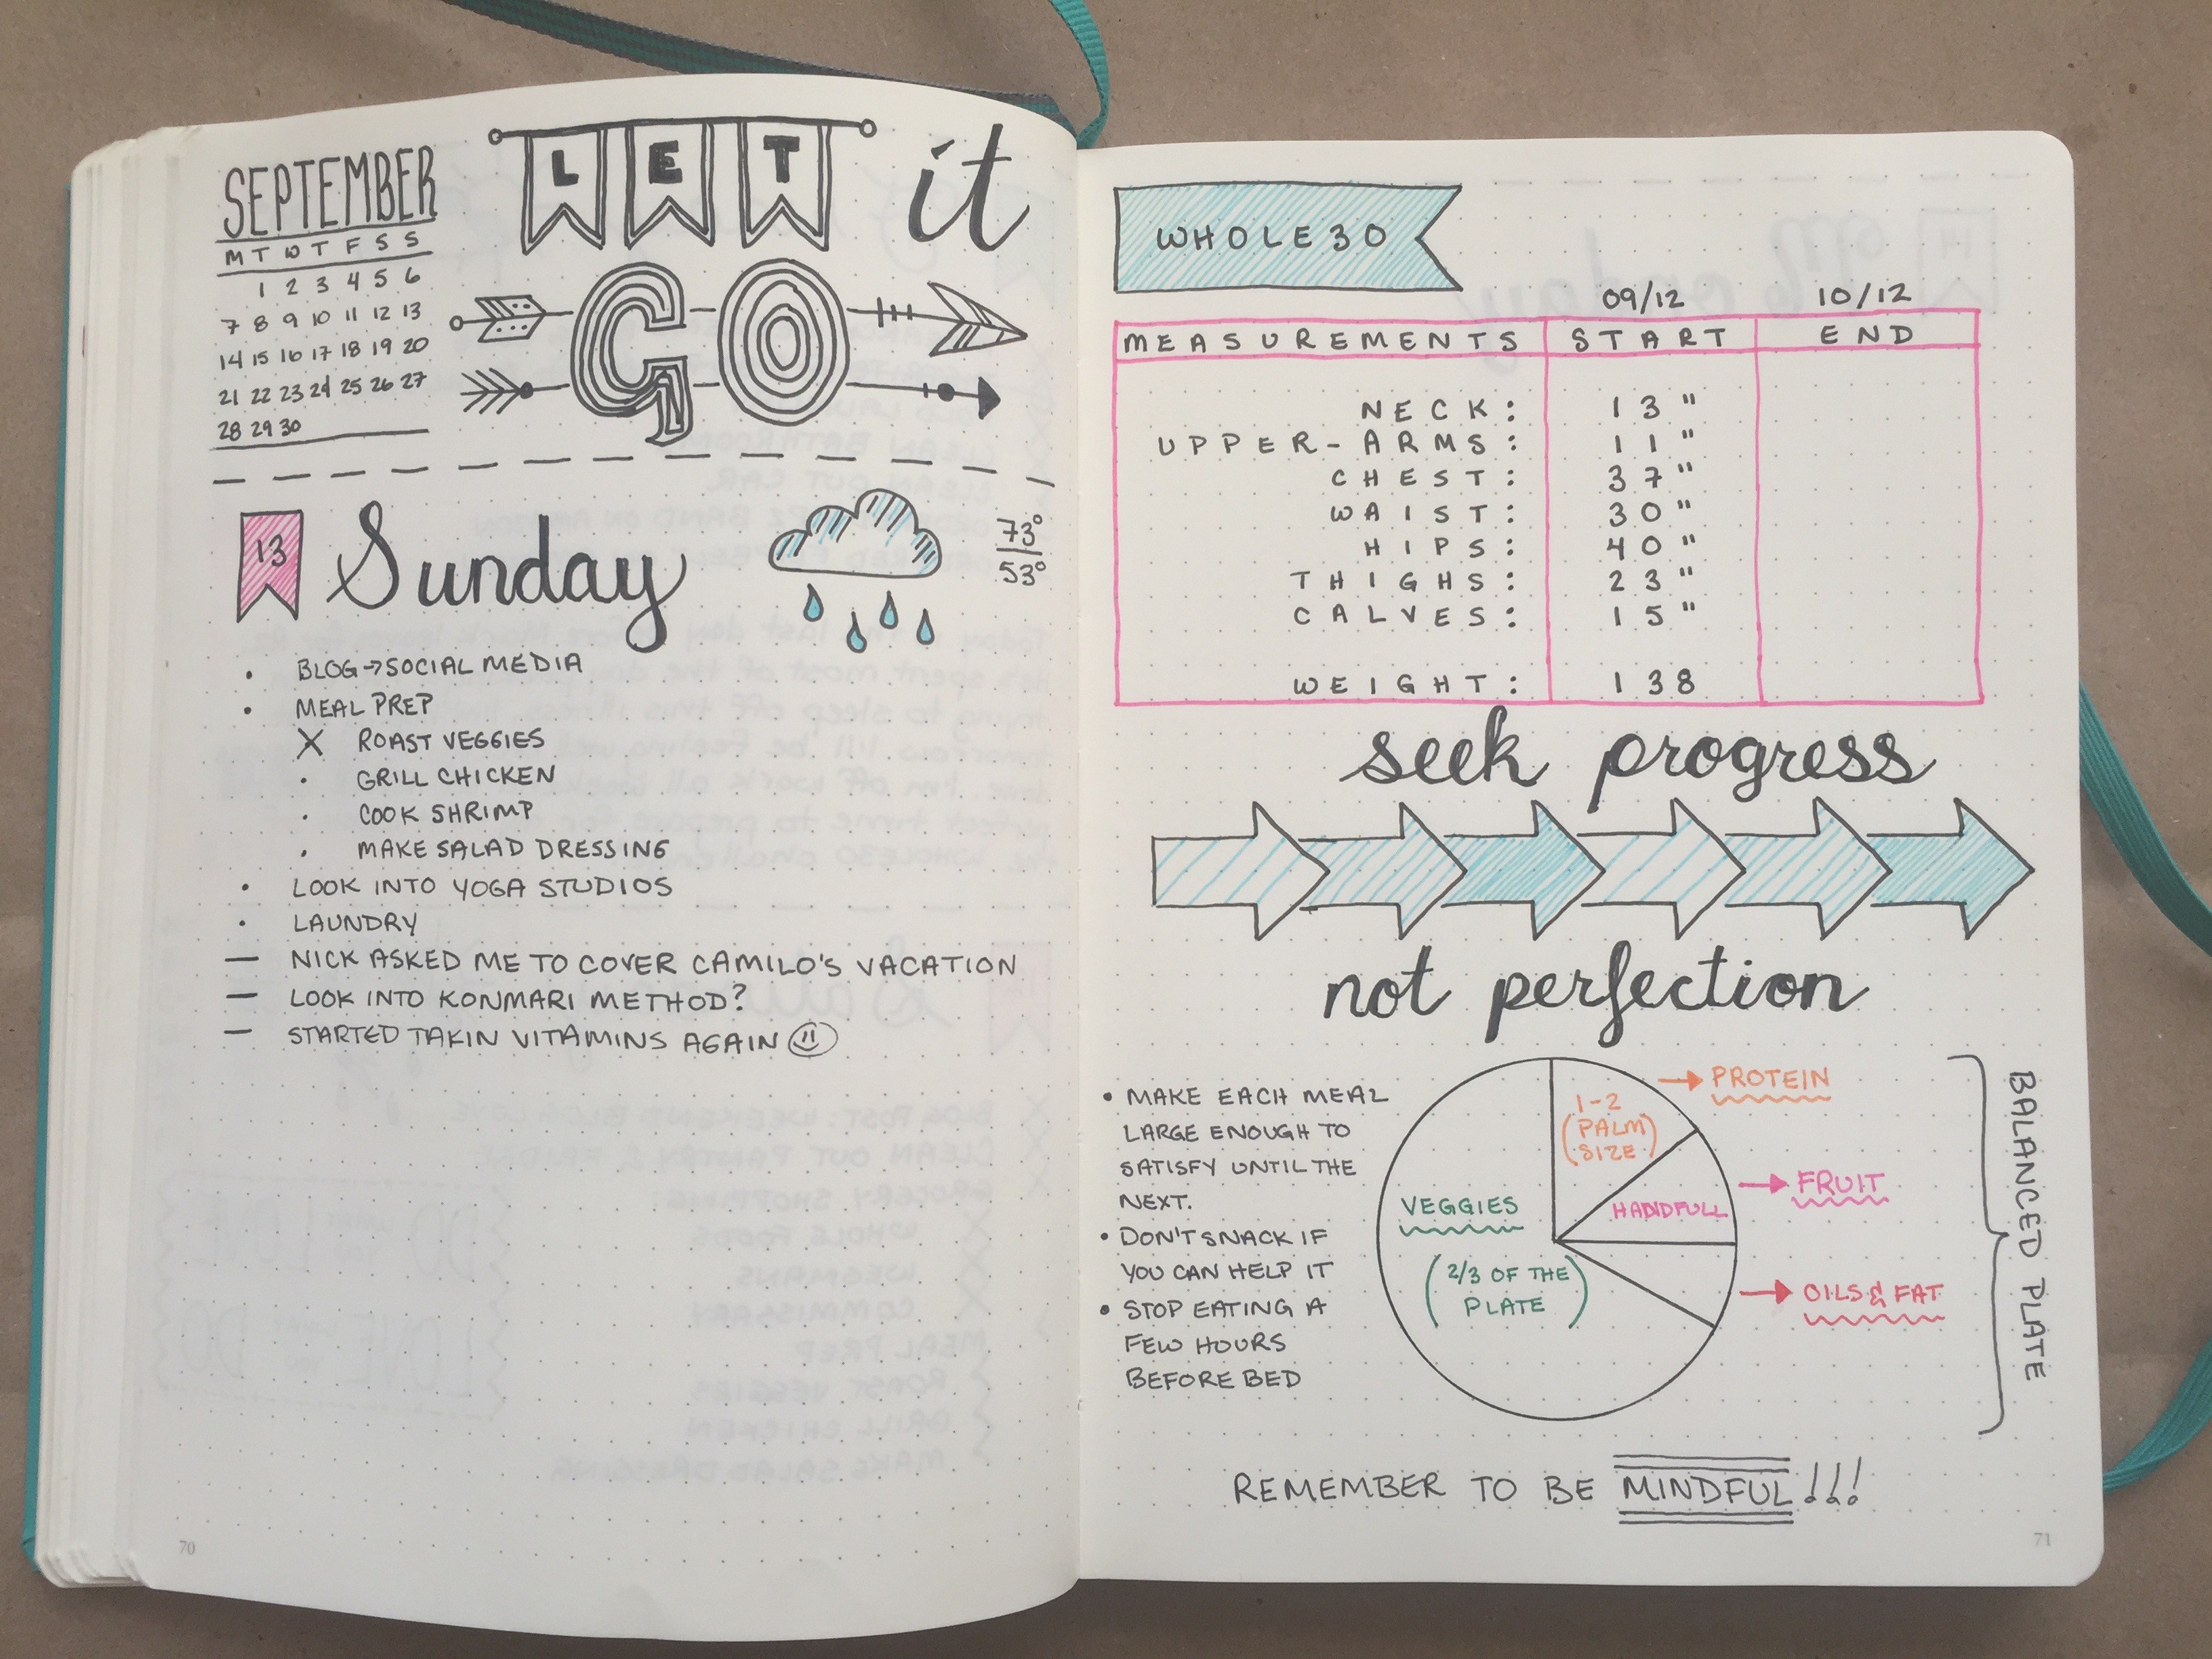 SEPTEMBER
M T W T F S S
1 2 3 4 5 6
7 8 9 10 11 12 13
14 15 16 17 18 19 20
21 22 23 24 25 26 27
28 29 30
LET it
GO
13 Sunday
73°
53°
• BLOG→SOCIAL MEDIA
• MEAL PREP
X ROAST VEGGIES
• GRILL CHICKEN
• COOK SHRIMP
• MAKE SALAD DRESSING
• LOOK INTO YOGA STUDIOS
• LAUNDRY
— NICK ASKED ME TO COVER CAMILO'S VACATION
— LOOK INTO KONMARI METHOD?
— STARTED TAKIN VITAMINS AGAIN
70
WHOLE30
09/12 10/12
MEASUREMENTS START END
NECK: 13"
UPPER-ARMS: 11"
CHEST: 37"
WAIST: 30"
HIPS: 40"
THIGHS: 23"
CALVES: 15"
WEIGHT: 138
seek progress
not perfection
• MAKE EACH MEAL
LARGE ENOUGH TO
SATISFY UNTIL THE
NEXT.
• DON'T SNACK IF
YOU CAN HELP IT
• STOP EATING A
FEW HOURS
BEFORE BED
VEGGIES
(2/3 OF THE
PLATE)
1-2
(PALM)
SIZE
→ PROTEIN
HANDFULL
→ FRUIT
→ OILS & FAT
BALANCED PLATE
REMEMBER TO BE MINDFUL!!!
71